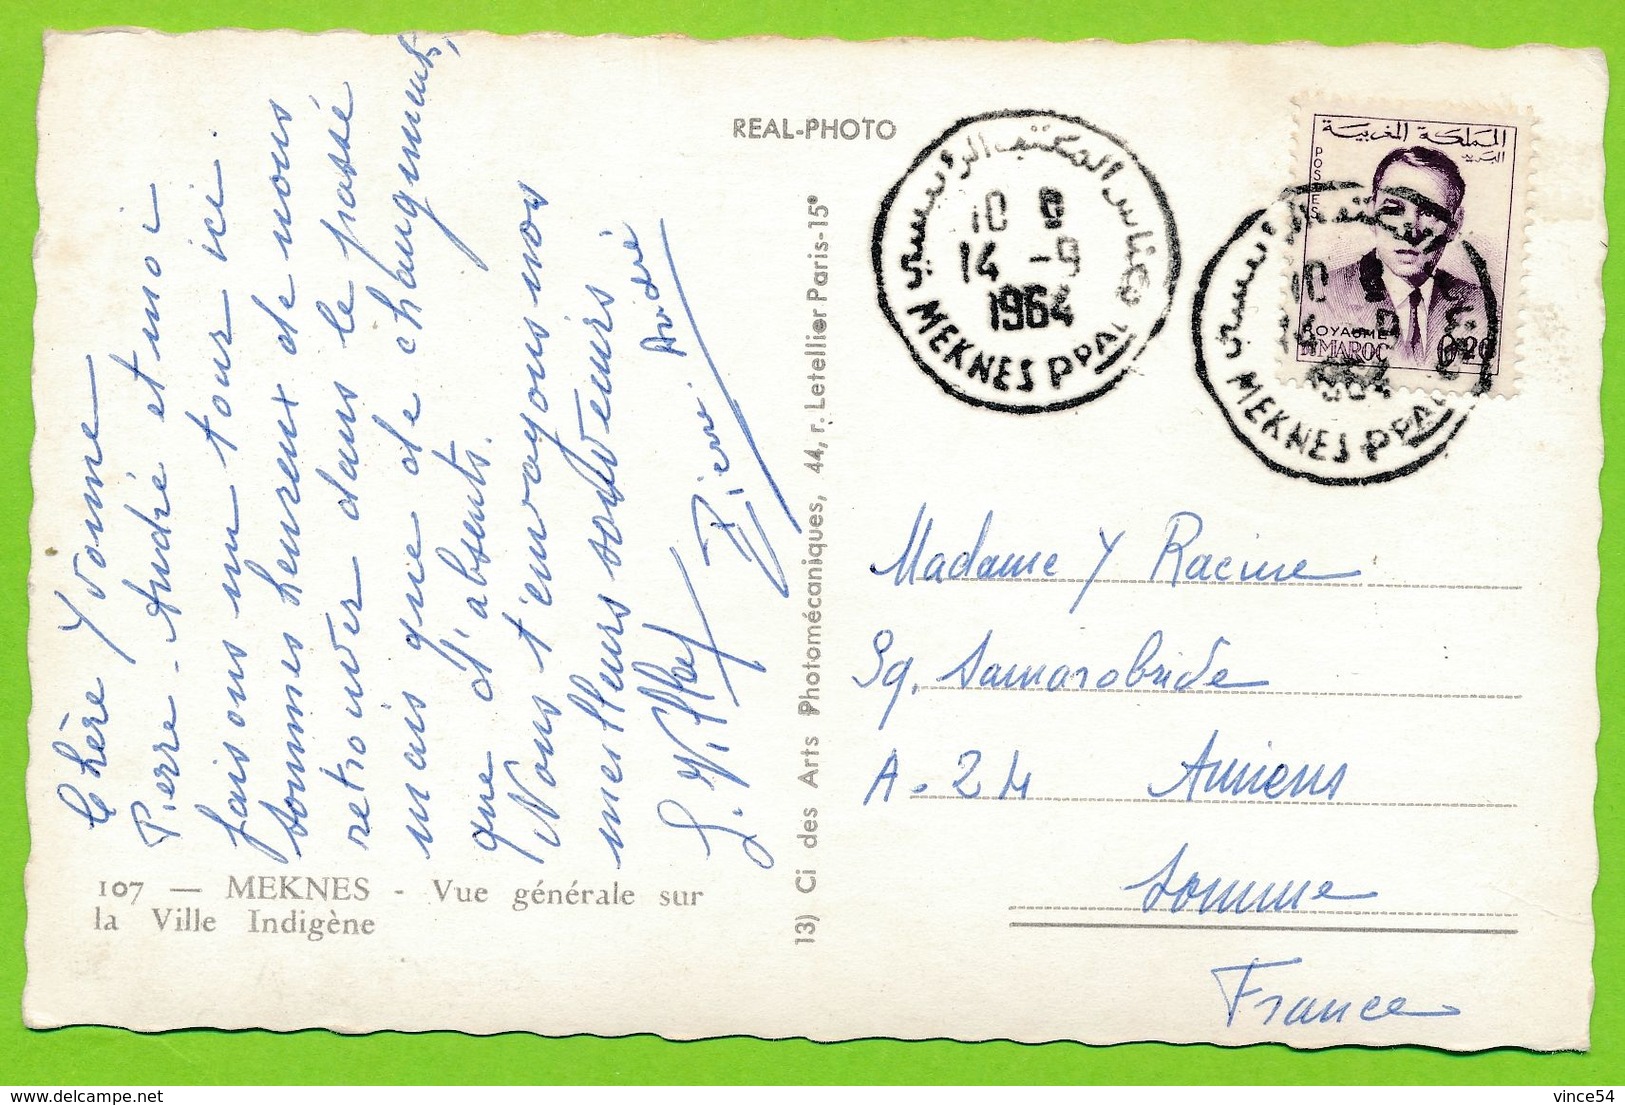 Chère Yvonne
Pierre-André et moi
faisons un tour ici.
Sommes heureux de nous
retrouver dans le passé
mais que de changements,
que d'absents.
Nous t'envoyons nos
meilleurs souvenirs
Pierre André
107 — MEKNES - Vue générale sur
la Ville Indigène
13) Ci des Arts Photomécaniques, 44, r. Letellier Paris-15e
REAL-PHOTO
مكناس المكتب الرئيسي
10 0
14 -9
1964
MEKNES PPAL
المملكة المغربية
البريد
POSTES
ROYAUME
DU MAROC
0,20
مكناس المكتب الرئيسي
10
14 -9
1964
MEKNES PPAL
Madame Y Racine
Sq. Samarobride
A-24 Amiens
Somme
France
delcampe.net
vince54